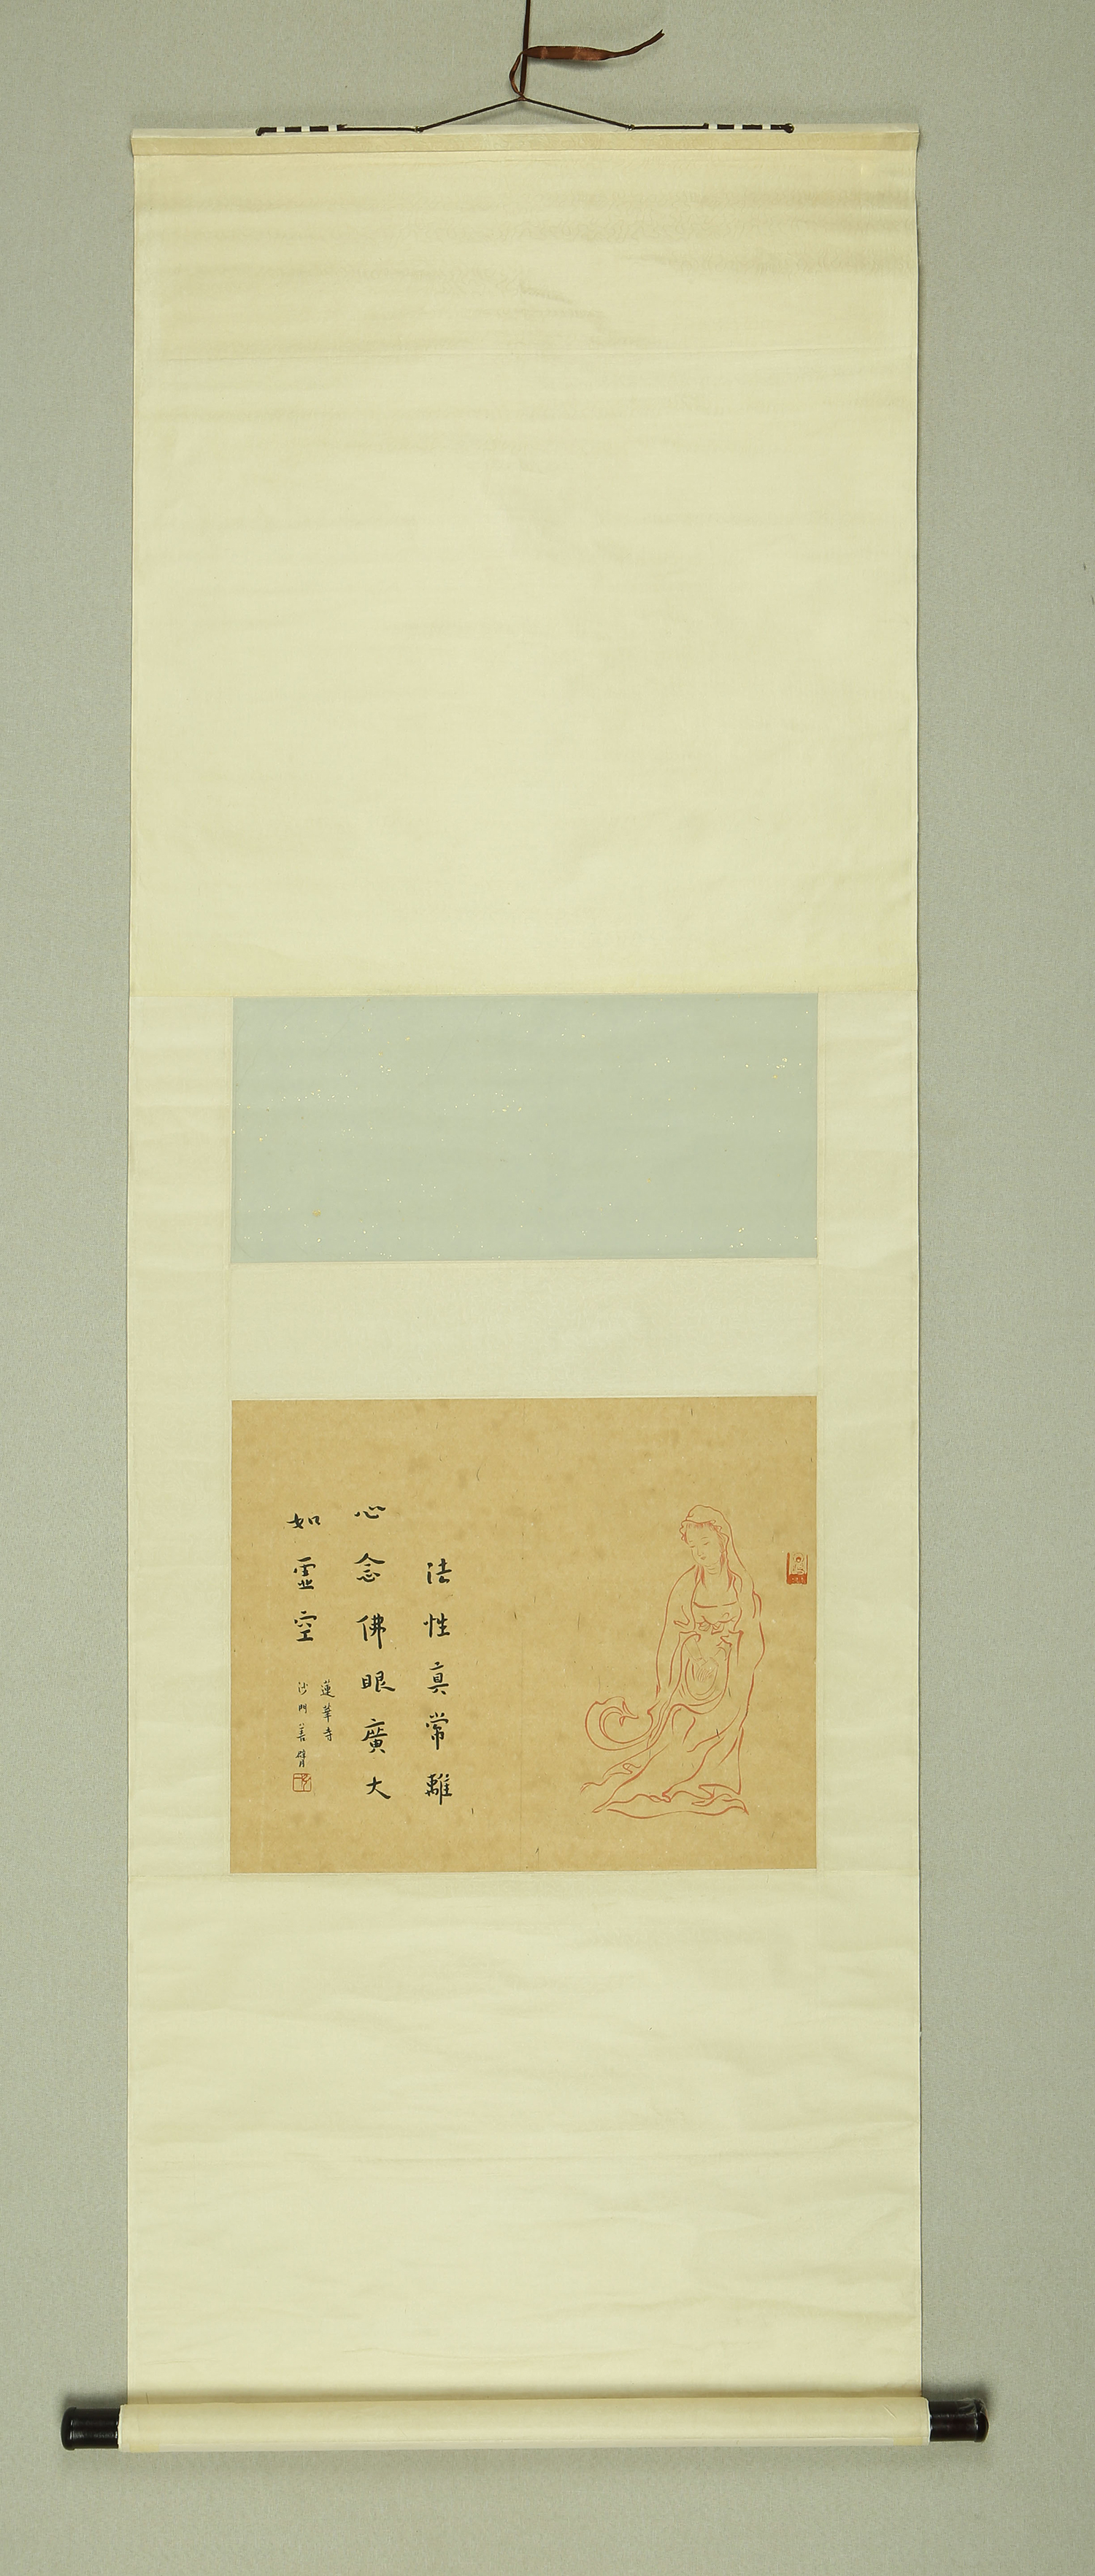 法性真常離
心念佛眼廣大
如虛空
蓮華寺
沙門善臂